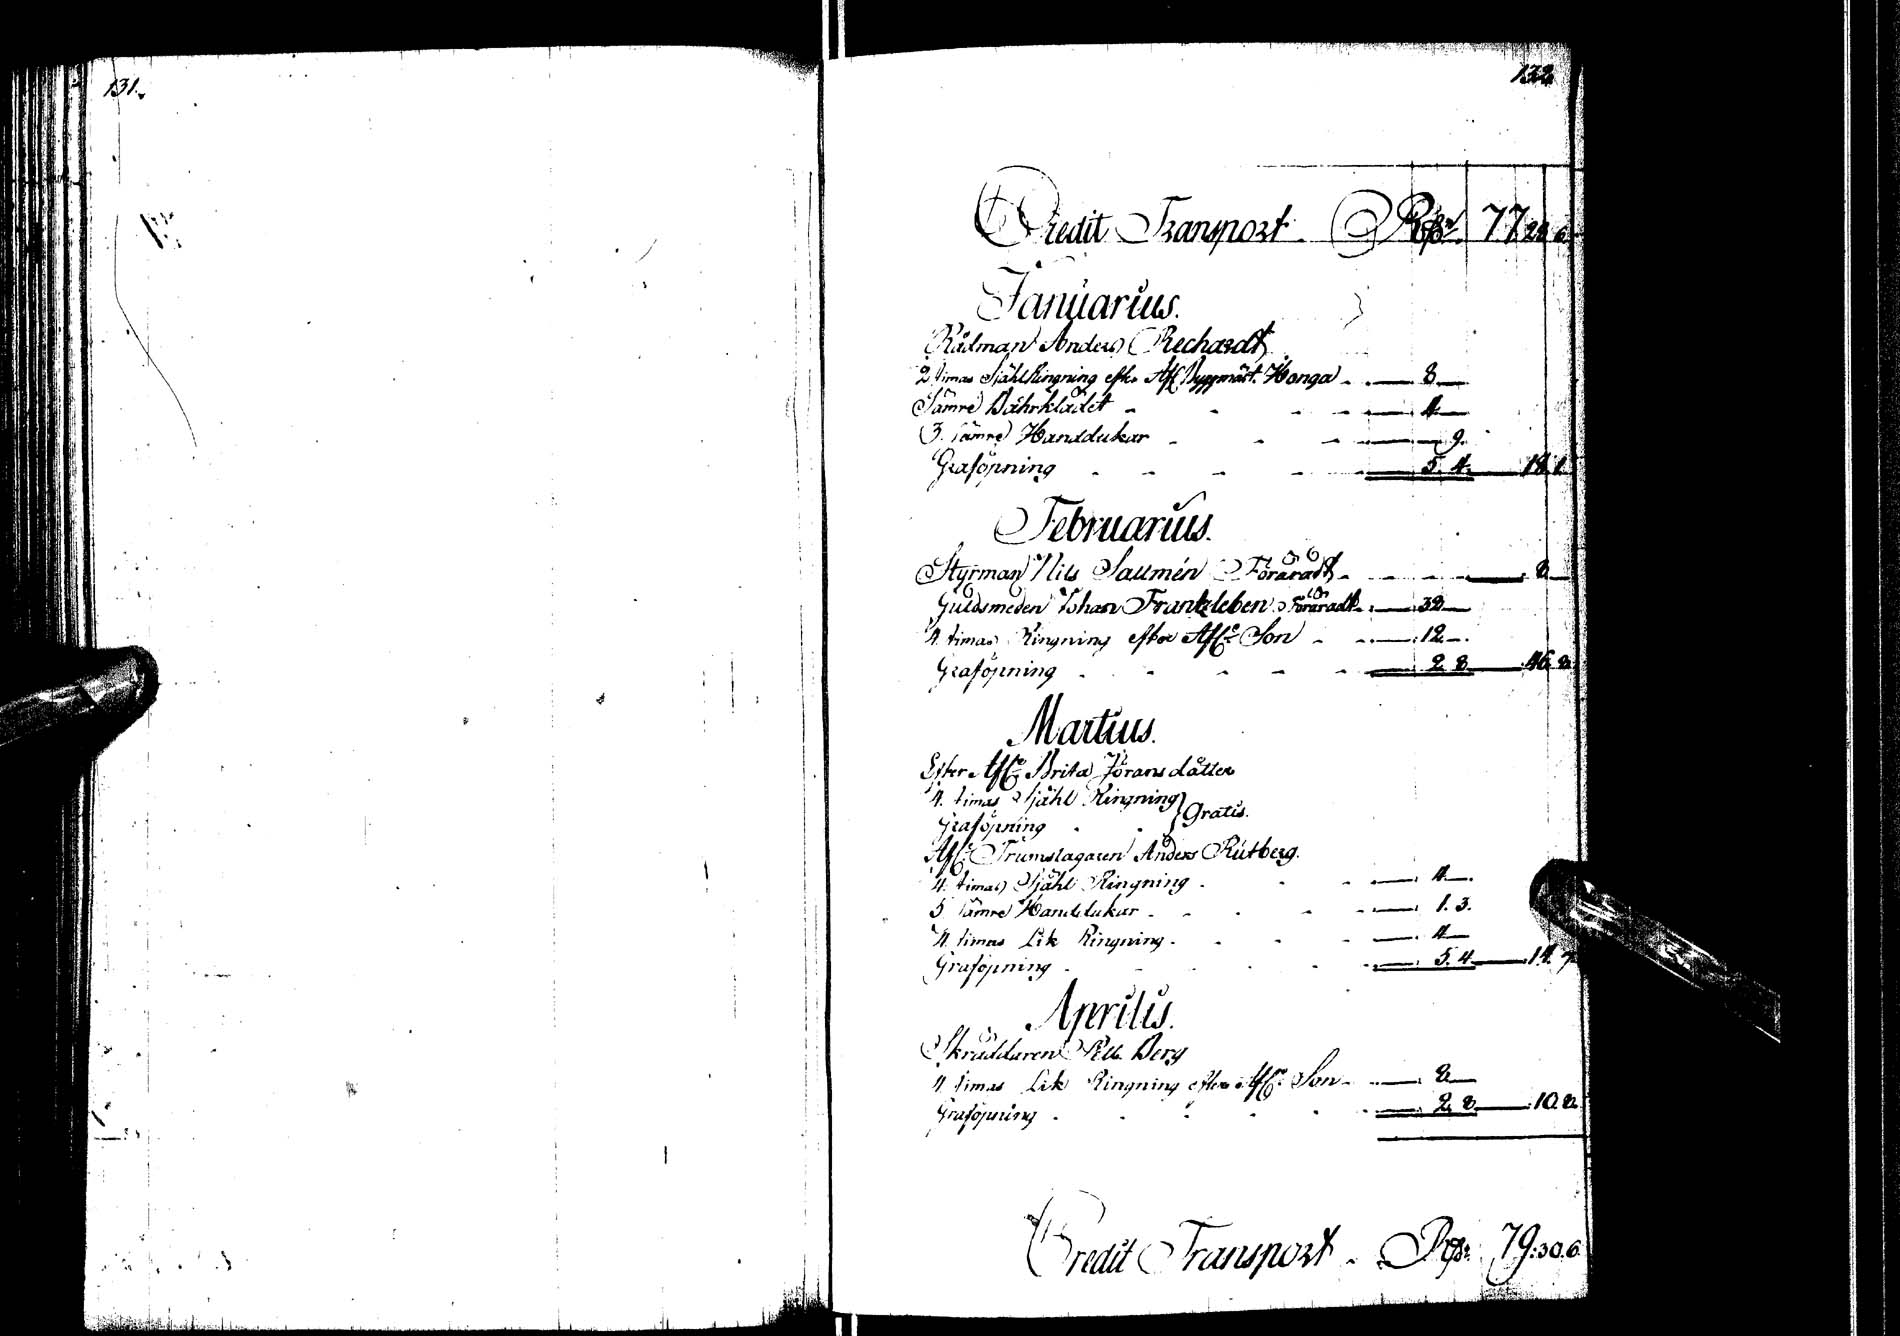 131.
132
Credit Transport. Rdr 77 28 6
Januarius.
Rådman Anders Rechardt
2 timas Själ Ringning efter Afl. Byggmäst. Honga - 8 —
Sämre Bahrklädet - 4 —
3. sämre Handdukar - 9.
Graföpning - 5. 4. 18. 1.
Februarius.
Styrman Nils Saumén Föräradt - 8 —
Guldsmeden Johan Frantzleben Föräradt - 32 —
4. timas Ringning efter Afl. Son - 12 —
Graföpning - 2 8 46. 8.
Martius.
Efter Afl. Brita Jörans dåtter
4. timas Själ Ringning } Gratis.
Graföpning
Afl. Trumslagaren Anders Rutberg.
4. timas Själ Ringning - 4 —
5 sämre Handdukar - 1. 3.
4. timas Lik Ringning - 4 —
Graföpning - 5. 4 14. 7
Aprilis.
Skräddaren Berg
4 timas Lik Ringning efter Afl. Son - 8 —
Graföpning - 2 8 10. 8.
Credit Transport - Rdr 79:30.6